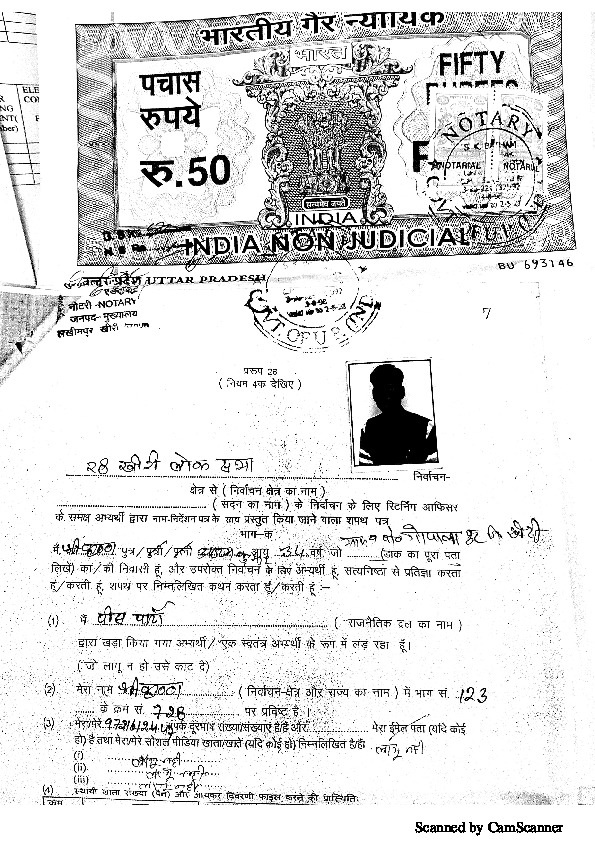 भारतीय गैर न्यायिक
भारत
पचास
रुपये
रु.50
FIFTY
RUPEES
NOTARY
NOTARIAL NOTARIAL
सत्यमेव जयते
INDIA
INDIA NON JUDICIAL
BU 693146
उत्तर प्रदेश UTTAR PRADESH
नोटरी-NOTARY
जनपद-मुख्यालय
लखीमपुर खीरी
GOVT. OF U.P.
7
प्ररूप 26
( नियम 4क देखिए )
28 खीरी लोक सभा निर्वाचन-
क्षेत्र से ( निर्वाचन क्षेत्र का नाम )
( सदन का नाम ) के निर्वाचन के लिए रिटर्निंग आफिसर
के समक्ष अभ्यर्थी द्वारा नाम-निर्देशन पत्र के साथ प्रस्तुत किया जाने वाला शपथ पत्र
भाग-क
मैं श्रीकृष्णा पुत्र/पुत्री/पत्नी आयु 34 वर्ष जो (डाक का पूरा पता
लिखें) का/की निवासी हूं, और उपरोक्त निर्वाचन के लिए अभ्यर्थी हूं, सत्यनिष्ठा से प्रतिज्ञा करता
हूं/करती हूं, शपथ पर निम्नलिखित कथन करता हूं/करती हूं :-
(1) मैं पीस पार्टी ( राजनैतिक दल का नाम )
द्वारा खड़ा किया गया अभ्यर्थी/ एक स्वतंत्र अभ्यर्थी के रूप में लड़ रहा हूँ।
(जो लागू न हो उसे काट दें)
(2) मेरा नाम श्रीकृष्णा ( निर्वाचन-क्षेत्र और राज्य का नाम ) में भाग सं. 123
के क्रम सं. 728 पर प्रविष्ट है ।
(3) मेरा/मेरे संपर्क दूरभाष संख्या/संख्याएं है/हैं और मेरा ईमेल पता (यदि कोई
हो) है तथा मेरा/मेरे सोशल मीडिया खाता/खाते (यदि कोई हो) निम्नलिखित है/हैं: लागू नहीं
(i) लागू नहीं
(ii) लागू नहीं
(iii) लागू नहीं
(4) स्थायी खाता संख्या (पैन) और आयकर विवरणी फाइल करने की प्रास्थिति:
क्रम
Scanned by CamScanner